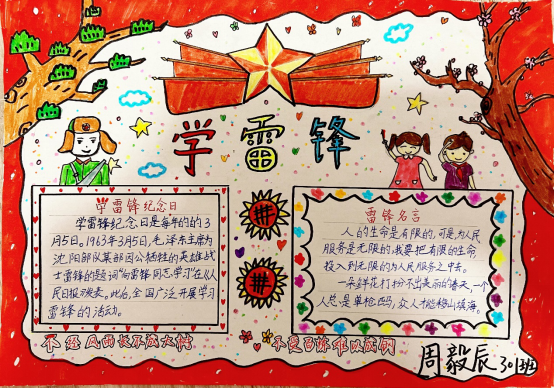 学雷锋
学雷锋纪念日
学雷锋纪念日是每年的3
月5日。1963年3月5日,毛泽东主席为
沈阳部队某部因公牺牲的英雄战
士雷锋的题词"向雷锋同志学习"在《人
民日报》发表。此后,全国广泛开展学习
雷锋的活动。
雷锋名言
人的生命是有限的,可是为人民
服务是无限的,我要把有限的生命
投入到无限的为人民服务之中去。
一朵鲜花打扮不出美丽的春天,一个
人总是单枪匹马,众人才能移山填海。
不经风雨长不成大树
不受百炼难以成钢
周毅辰 301班